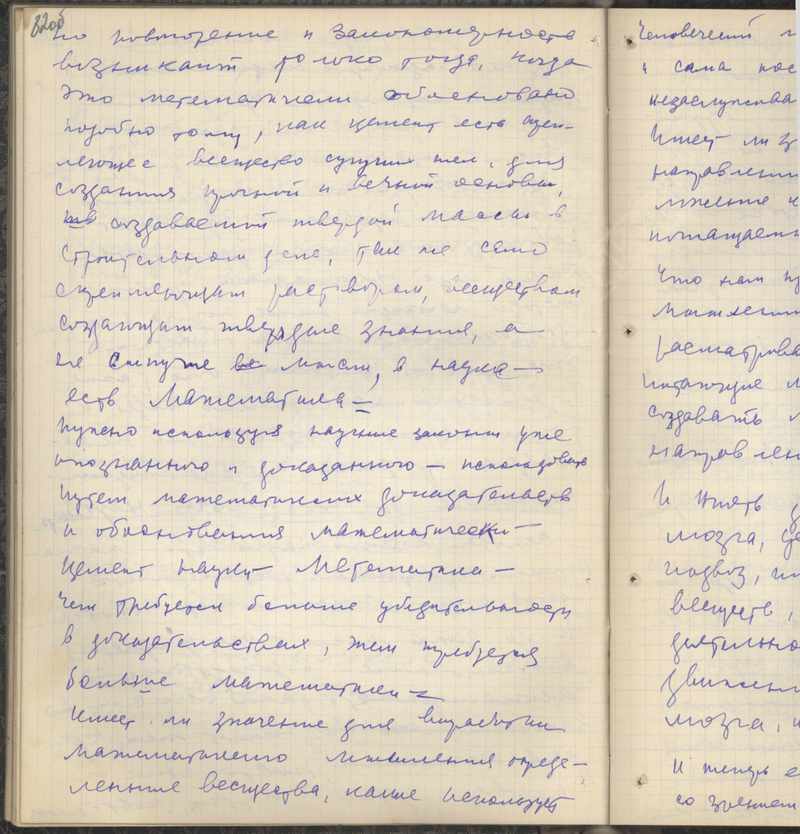 820б
но повторение и закономерность
возникают только тогда, когда
это математически обосновано
подобно тому, как цемент есть
вещество сыпучих тел, для
создания прочной и вечной основы,
создаваемой твердой массы в
строительном деле, так же само
скрепляющим раствором, веществом
создающим твердые знания, а
не сыпучие мысли, в науке —
есть Математика —
Нужно используя научные законы уже
опознанного и доказанного — использовать
путем математических доказательств
и обоснования математически —
Цемент науки — Математика —
Чем требуется больше убедительности
в доказательствах, тем требуется
больше математики —
Имеет ли значение для выработки
математического мышления опреде-
ленные вещества, какие использует
Человеческий
и сама
Имеет ли
направлении
Что нам
создавать
направлен
И опять
мозга,
подвоз,
веществ,
деятельно
движени
мозга, и
И теперь
со зрением